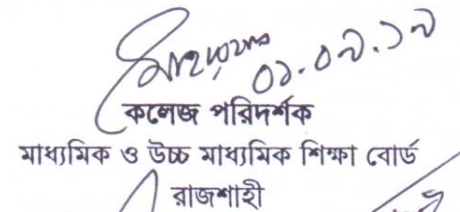 ০১.০৭.১৭
কলেজ পরিদর্শক
মাধ্যমিক ও উচ্চ মাধ্যমিক শিক্ষা বোর্ড
রাজশাহী